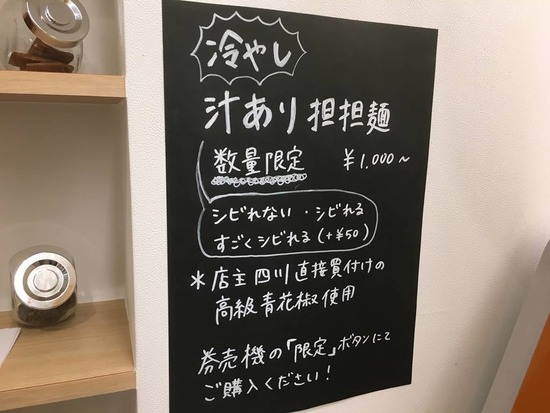 冷やし
汁あり担担麺
数量限定 ¥1,000～
シビれない・シビれる
すごくシビれる(+¥50)
＊店主四川直接買付けの
高級青花椒使用
券売機の「限定」ボタンにて
ご購入ください!